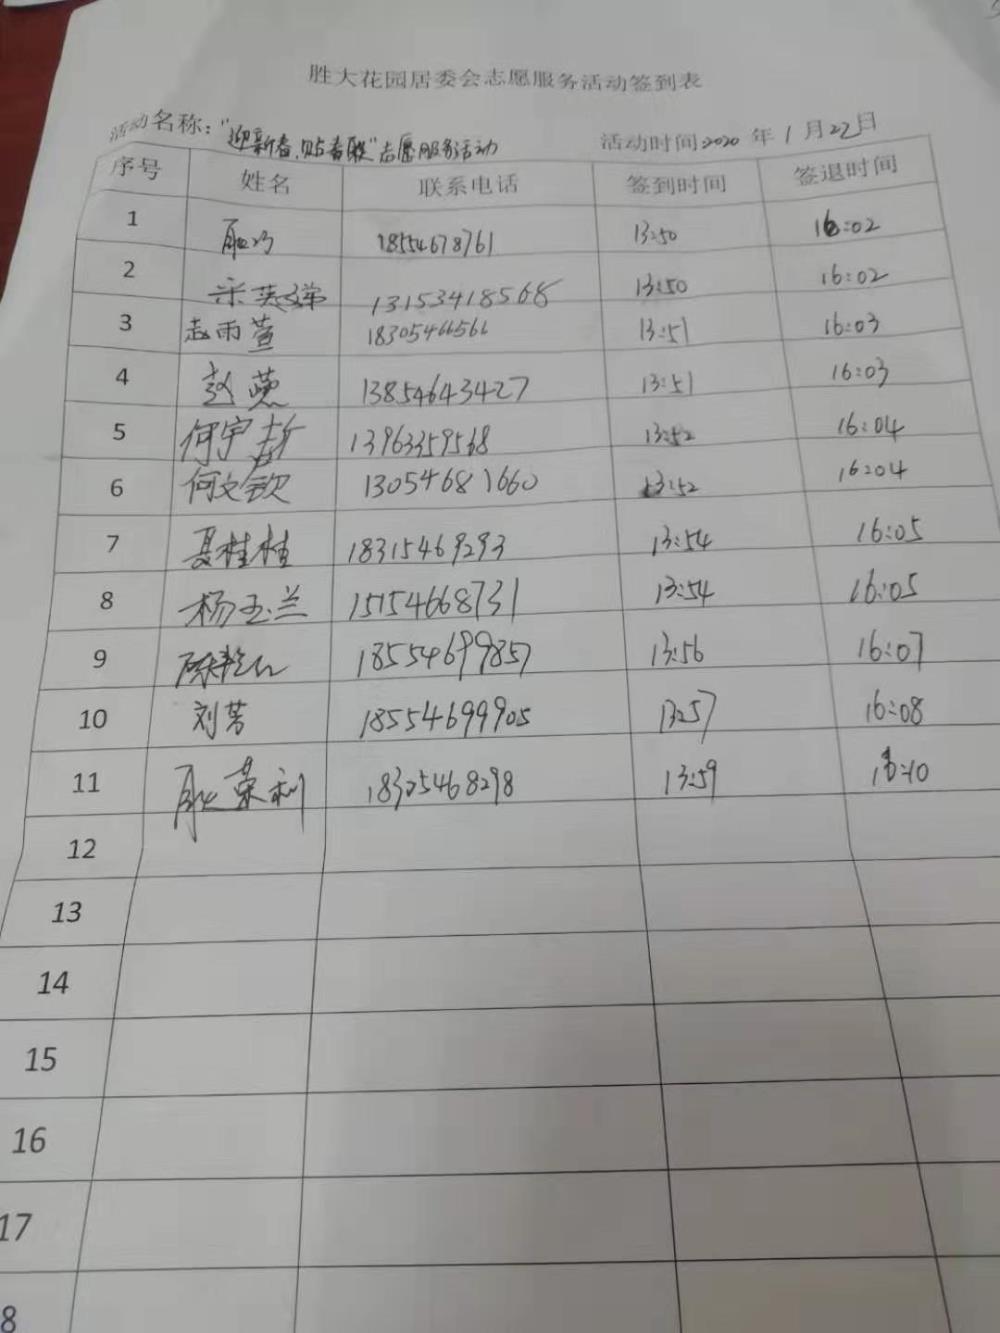 胜大花园居委会志愿服务活动签到表
活动名称："迎新春,贴春联"志愿服务活动 活动时间2020年1月22日
序号 姓名 联系电话 签到时间 签退时间
1 耿巧 18554678761 13:50 16:02
2 宋英娣 13153418568 13:50 16:02
3 赵雨萱 18305466566 13:51 16:03
4 赵燕 13854643427 13:51 16:03
5 何宇哲 13963359568 13:52 16:04
6 何文钦 13054681660 13:52 16:04
7 聂桂桂 18315469293 13:54 16:05
8 杨玉兰 15154668731 13:54 16:05
9 18554699857 13:56 16:07
10 刘芳 18554699905 13:57 16:08
11 耿荣利 18305468298 13:59 16:10
12
13
14
15
16
17
8